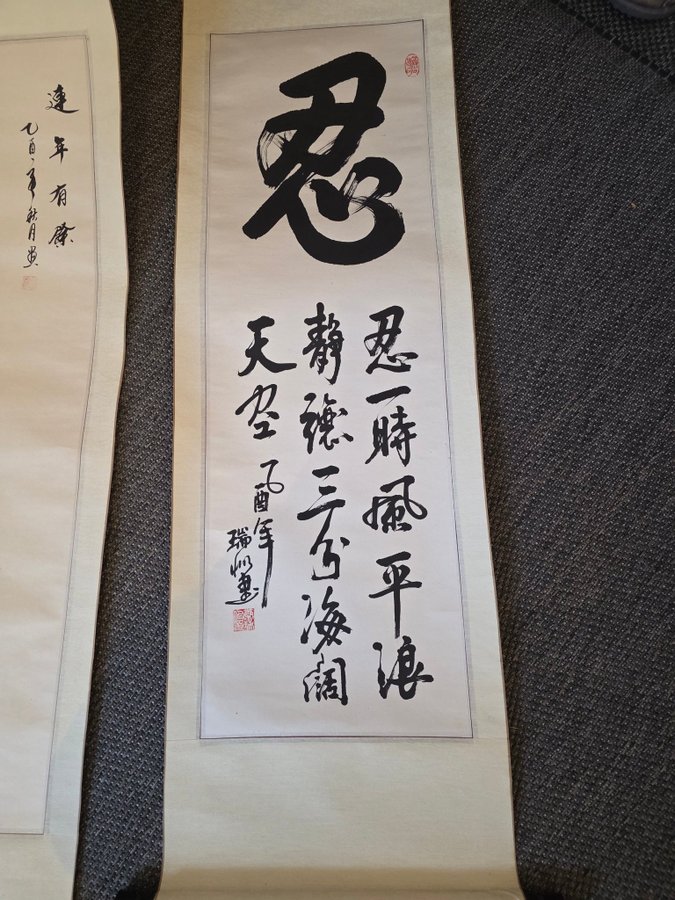 忍
忍一時風平浪
靜讓三分海闊
天空 乙酉年
瑞 書
連年有餘
乙酉年秋月畫